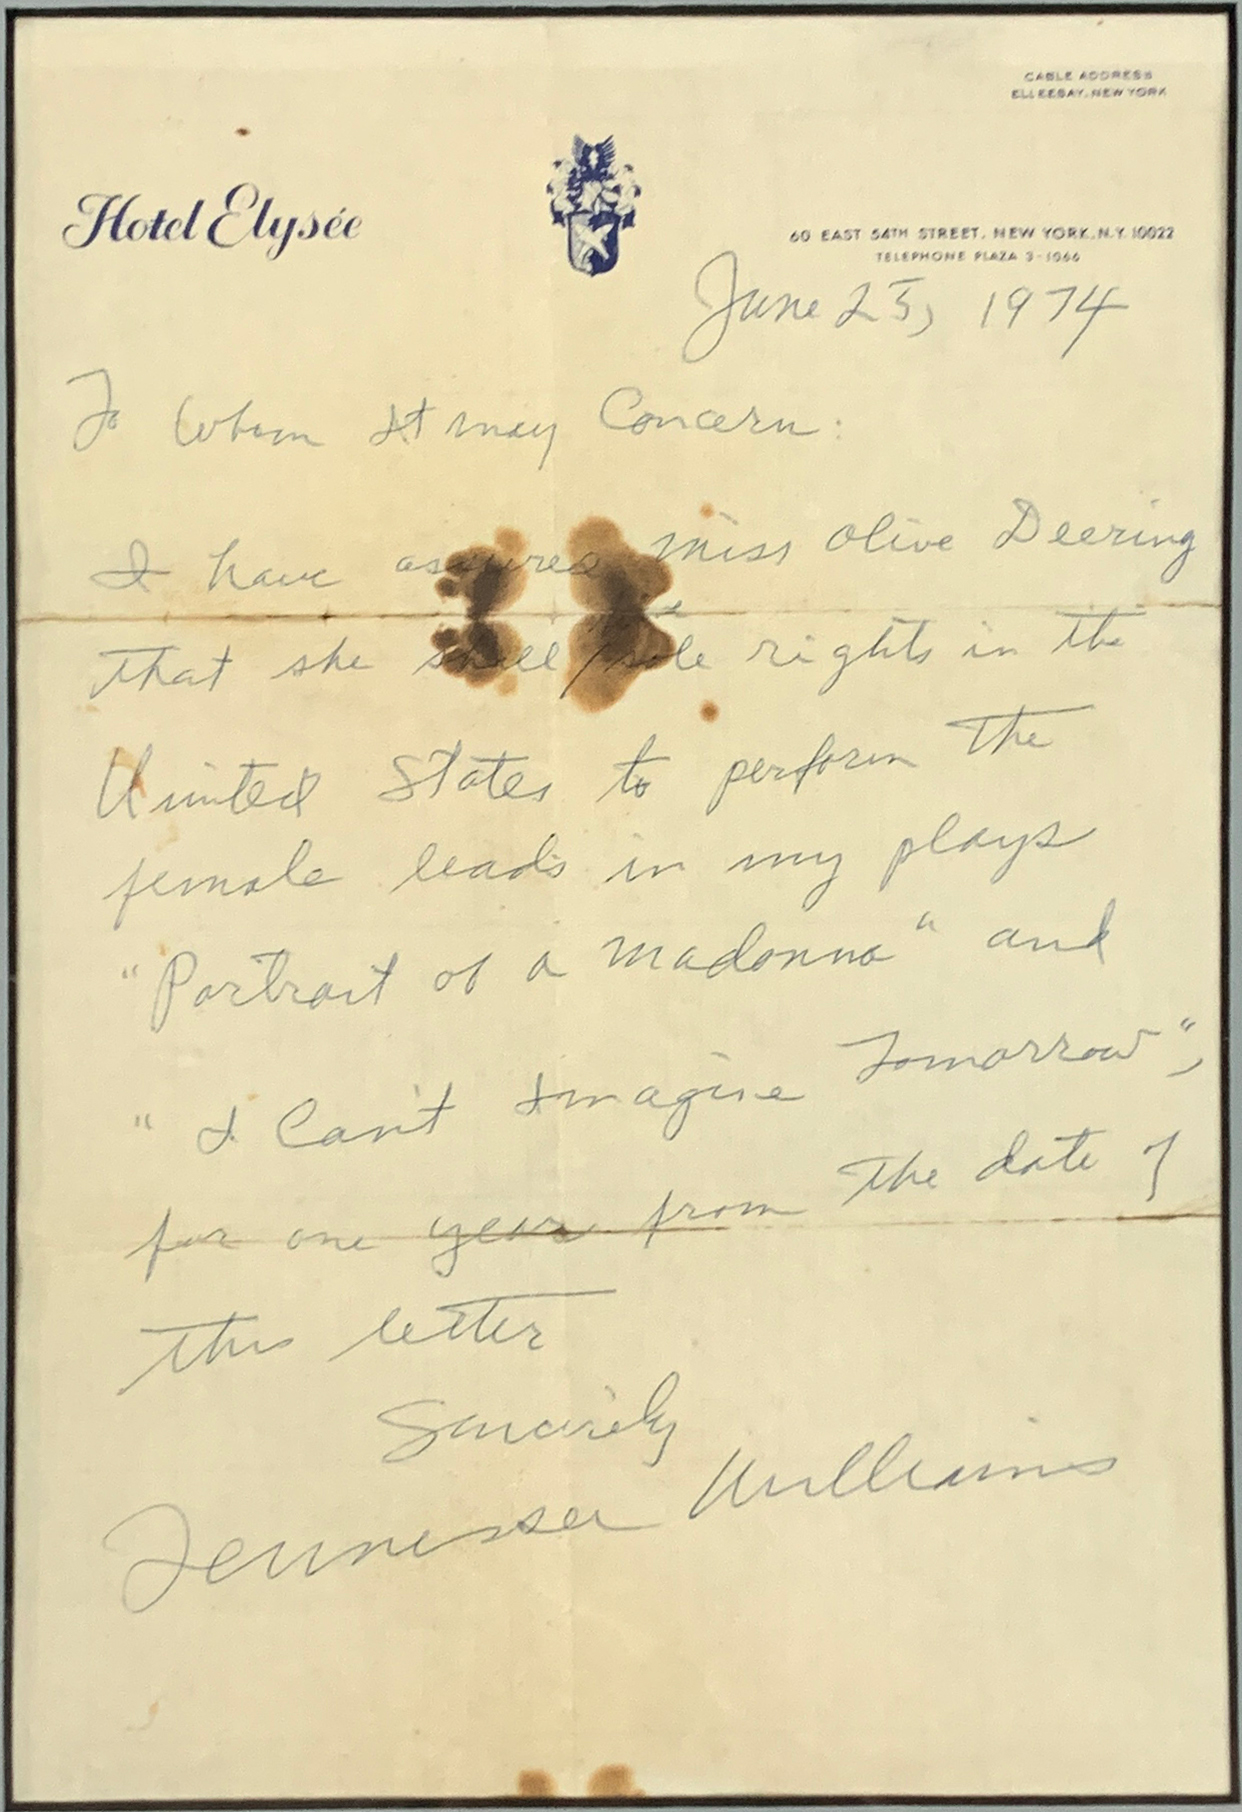 CABLE ADDRESS
ELLEEBAY, NEW YORK
Hotel Elysée
60 EAST 54TH STREET, NEW YORK, N.Y. 10022
TELEPHONE PLAZA 3-1066
June 25, 1974
To Whom It may Concern:
I have assured Miss Olive Deering
that she shall / sole rights in the
United States to perform the
female leads in my plays
"Portrait of a Madonna" and
"I Can't Imagine Tomorrow",
for one year from the date of
this letter
Sincerely
Tennessee Williams